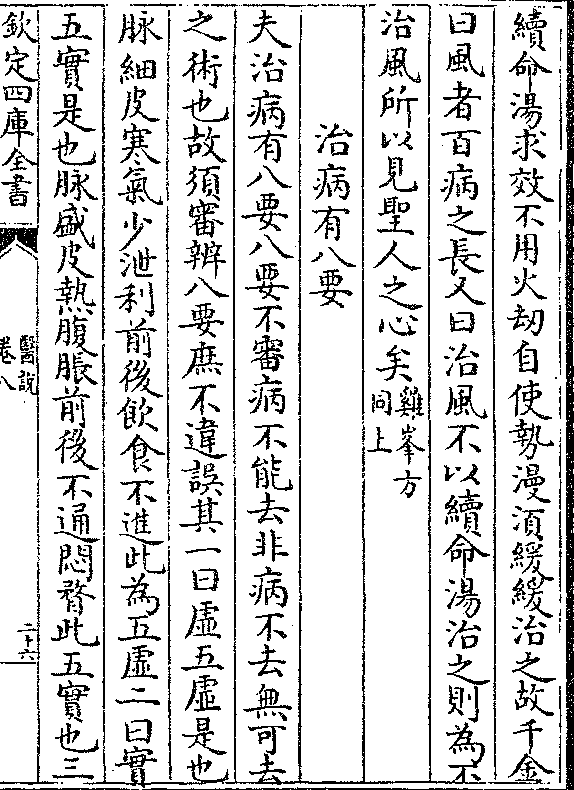 續命湯求效不用火劫自使勢漫湏緩緩治之故千金
曰風者百病之長又曰治風不以續命湯治之則為不
治風所以見聖人之心矣雞峯方
同上
治病有八要
夫治病有八要八要不審病不能去非病不去無可去
之術也故須審辨八要庶不違誤其一曰虛五虛是也
脉細皮寒氣少泄利前後飲食不進此為五虛二曰實
五實是也脉盛皮熱腹脹前後不通悶瞀此五實也三
欽定四庫全書
醫說
卷八
二十六